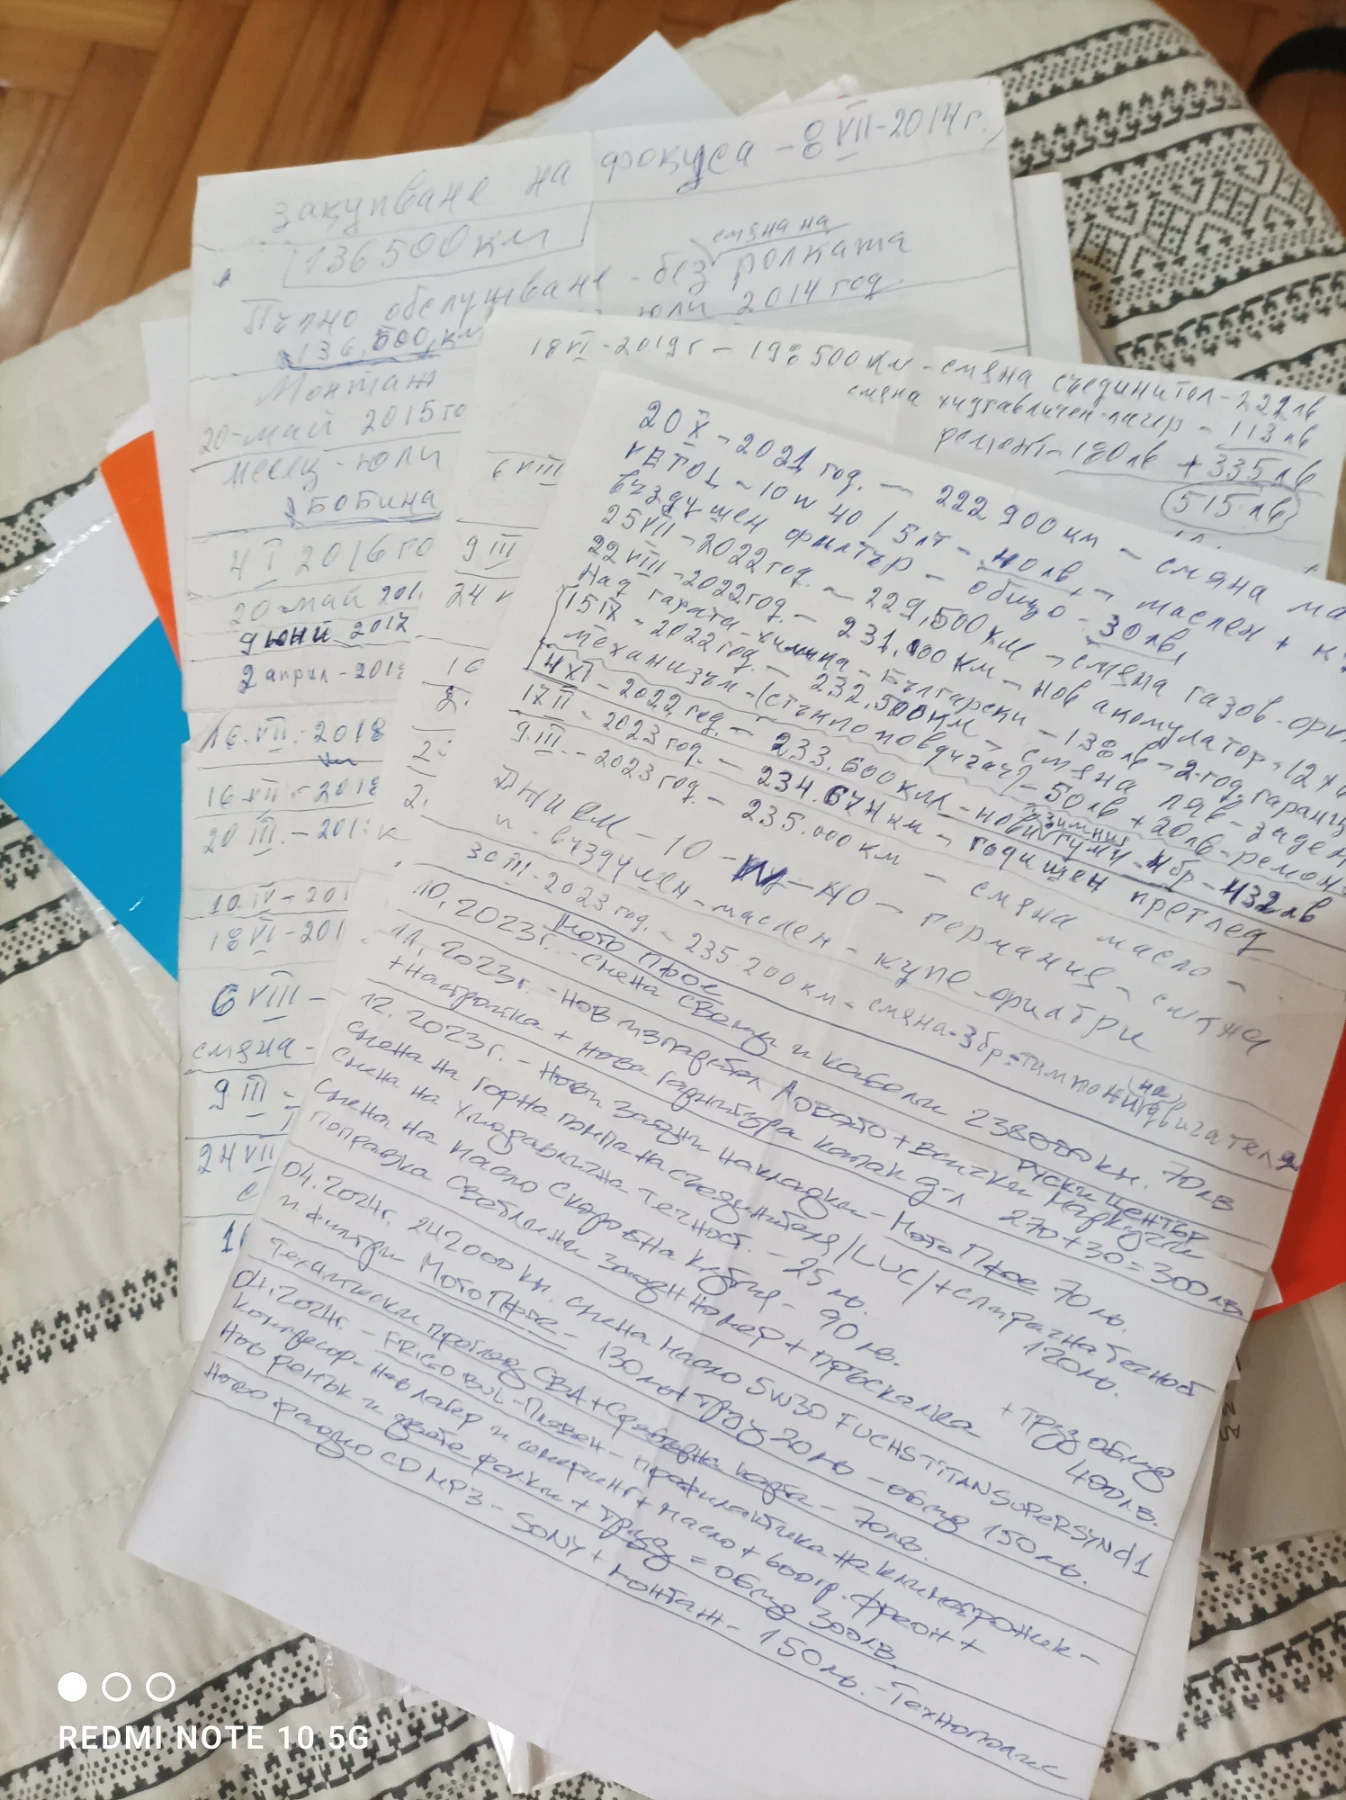 закупване на фокуса - 8 VII - 2014 г.
136500 км
смяна на
Пълно обслужване - без ролката
136,500 км юли 2014 год.
Монтаж
20 - май 2015 го
месец - юли
БОБИНА
4 I 2016 го
20 май 201
9 юни 2017
2 април - 2018
16. VII. - 2018
16 VII - 2018
20 III. - 201
10. IV - 201
18 VI - 201
6 VIII -
смяна -
9 III -
24 VII
18 VI - 2019 г - 198 500 км - смяна съединител - 222 лв
смяна хидравличен лагер - 113 лв
ремонт - 180 лв + 335 лв
515 лв
6 VIII
9 III
24
20 X - 2021 год. - 222 900 км - смяна ма
10 W 40 / 5 лт - 40 лв - маслен + к
въздушен филтър - общо - 30 лв,
25 VII - 2022 год. - 229,500 км - смяна газов
22 VIII - 2022 год. - 231.000 км - нов акумулатор - 12
Български - 138 лв - 2 - год. гаранц
15 IX - 2022 год. - 232.500 км - смяна ляв - заден
механизъм - (стъклоповдигач) - 50 лв + 20 лв - ремон
4 XI - 2022 год. - 233.600 км - нови зимни гуми - 4 бр - 432 лв
17 II - 2023 год. - 234.674 км - годишен преглед
9. III. - 2023 год. - 235.000 км - смяна масло -
10 - W - 40 - германия - смяна
и - въздушен - маслен - купе - филтри
30 III - 2023 год. - 235.200 км - смяна - 3 бр - тампони на двигателя
Мото Пфое
10. 2023 г. - смена свещи и кабели 238000 км. 70 лв
11. 2023 г. - нов изпарител Ловато + всички маркучи
+ настройка + нова гарнитура капак д-л 270 + 30 = 300 лв.
12. 2023 г. - Нови задни накладки - Мото Пфое 70 лв.
смена на горна помпа на съединителя /LUC/ + спирачна течност
смена на хидравлична течност. - 25 лв. 120 лв.
смена на масло скоростна кутия - 90 лв. + труд общо
поправка светлини заден номер + пръскалка 400 лв.
04. 2024 г. 242000 км. смена масло 5W30 FUCHS TITAN SUPERSYN d1
и филтри Мото Пфое - 130 лв + труд 20 лв - общо 150 лв.
Технически преглед СВА + Сребърна карта - 70 лв.
04. 2024 г. - FRIGO BUL - Плевен - профилактика на климатроник -
компресор - нов лагер и семеринг + масло + 600 гр. фреон +
Нов ремък и двете ролки + труд = общо 300 лв.
Ново радио CD MP3 - SONY + монтаж - 150 лв. - Технополис
REDMI NOTE 10 5G